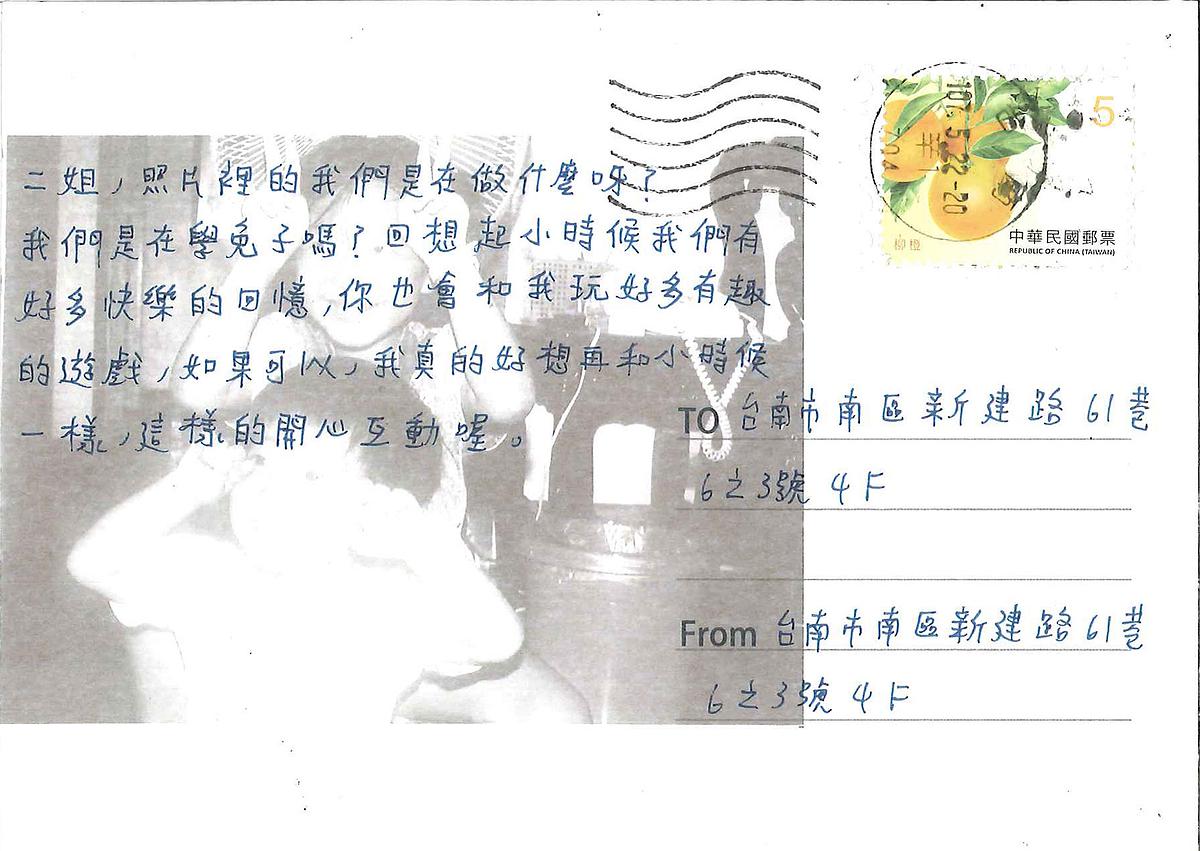 二姐，照片裡的我們是在做什麼呀？
我們是在學兔子嗎？回想起小時候我們有
好多快樂的回憶，你也會和我玩好多有趣
的遊戲，如果可以，我真的好想再和小時候
一樣，這樣的開心互動喔。
5
107.5.22-20
柳橙
中華民國郵票
REPUBLIC OF CHINA (TAIWAN)
TO 台南市南區新建路61巷
6之3號4F
From 台南市南區新建路61巷
6之3號4F